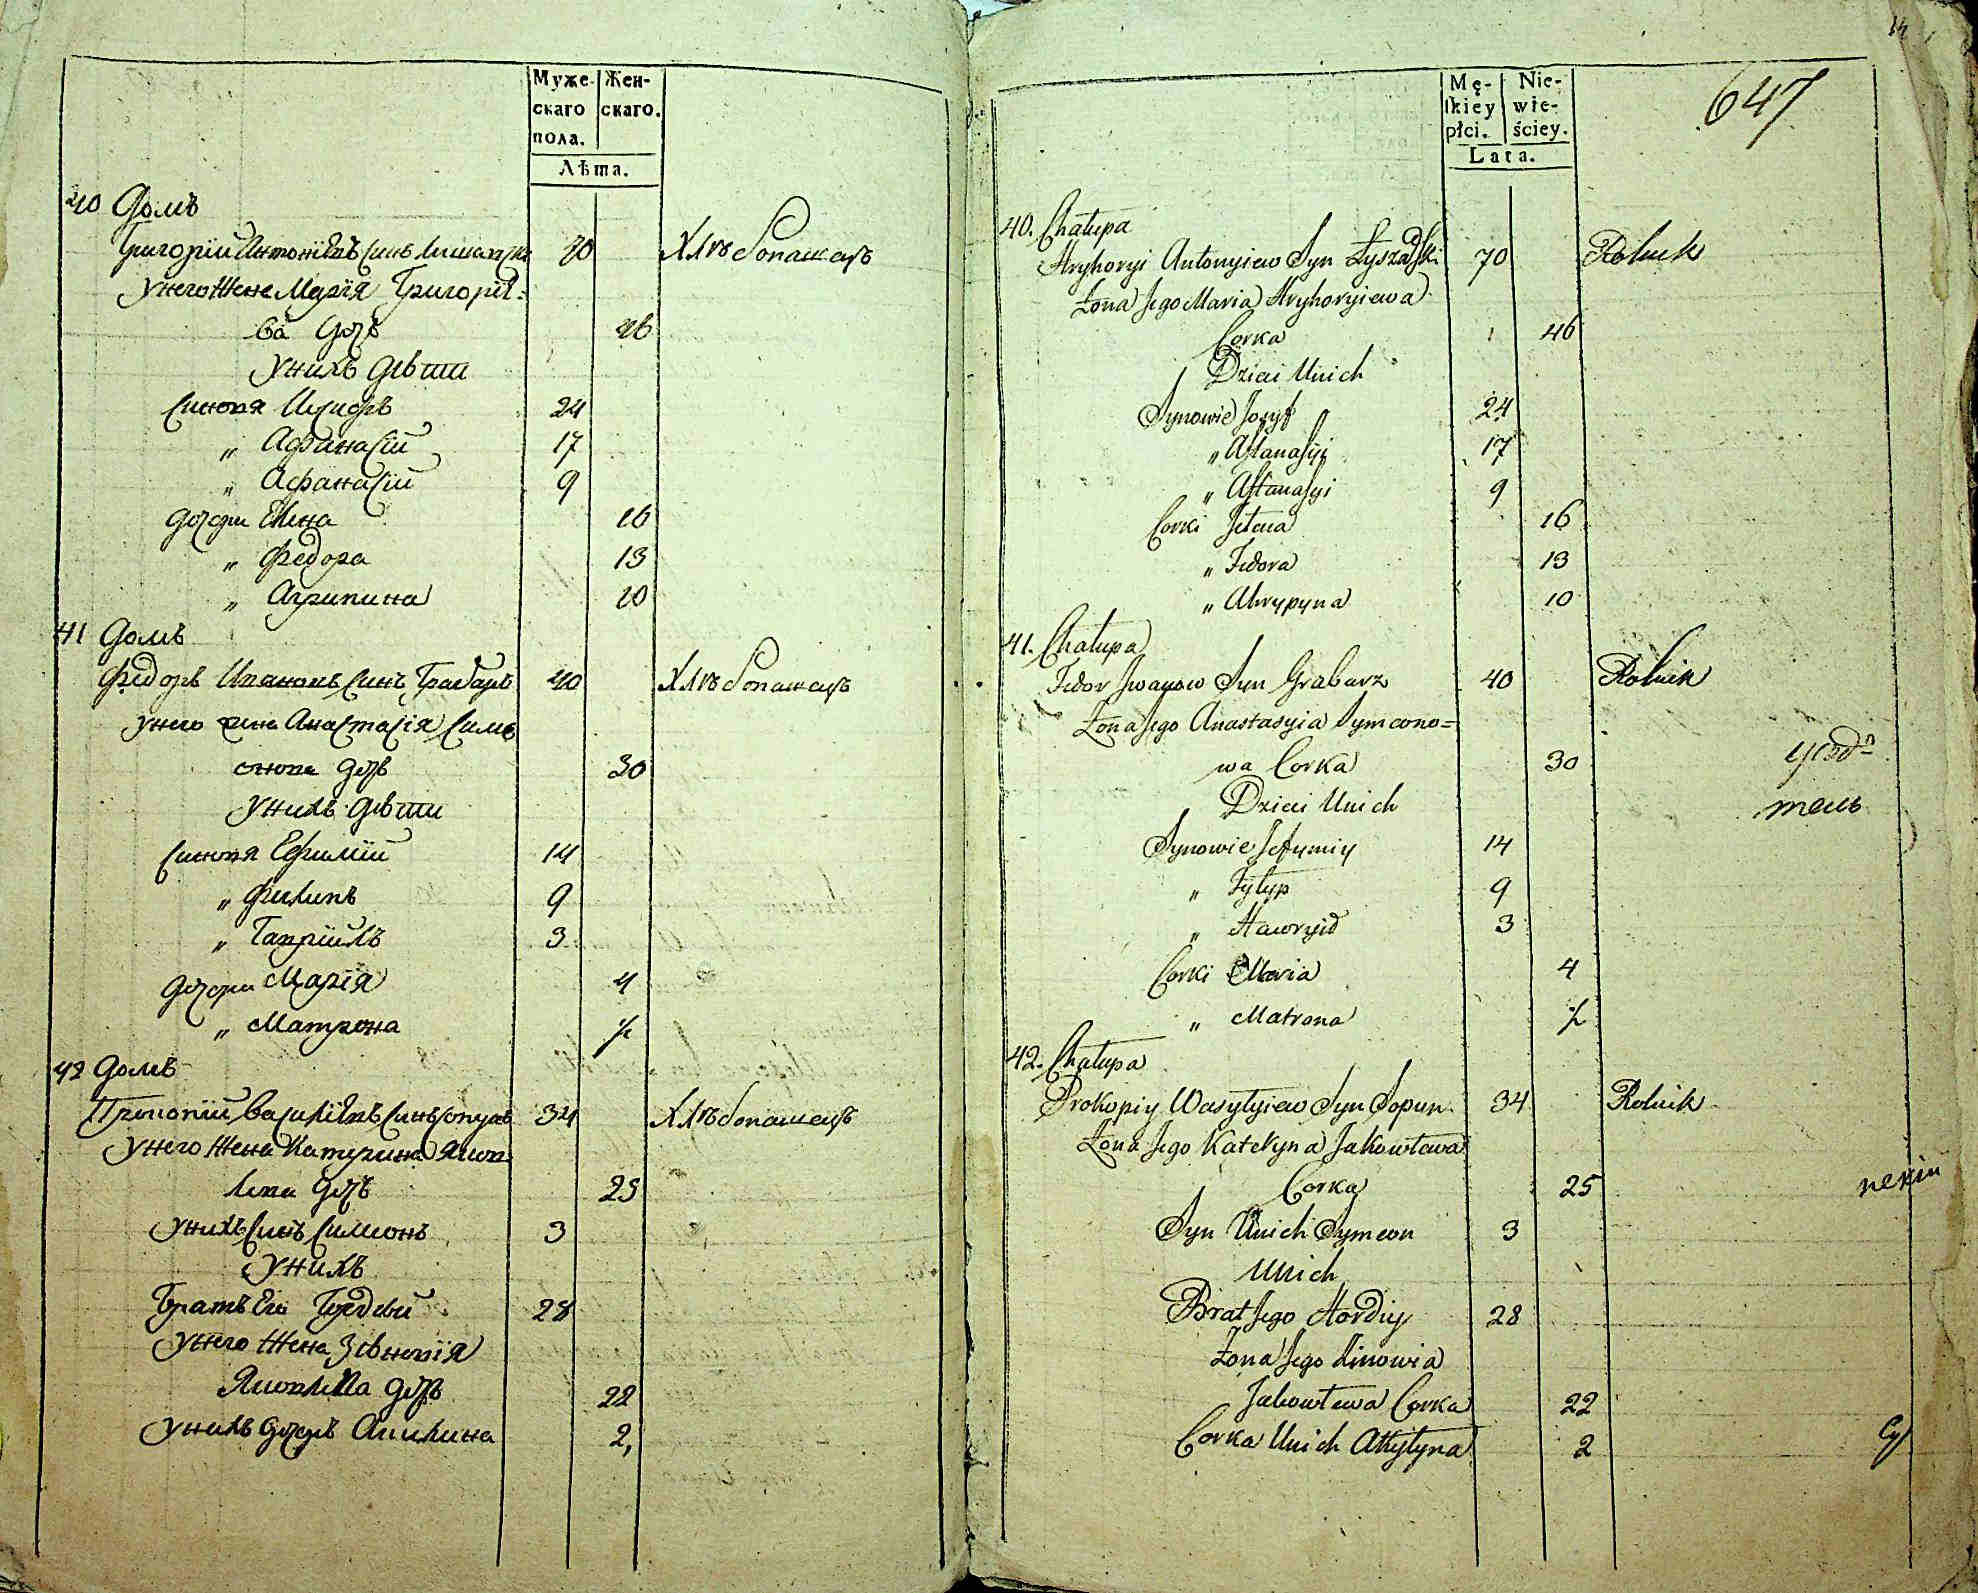 Муже- Жен-
скаго скаго.
пола.
Лѣта.
40 Домъ
Григорій Антоніевъ Синъ 70 Хлѣбопашецъ
у него жена Марія Григоріе-
ва дочь 46
у нихъ дѣти
синовя Иосифъ 24
" Афанасій 17
" Афанасій 9
дочери Елена 16
" Федора 13
" Агрипина 10
41 Домъ
Федоръ Ивановъ Синъ Грабаръ 40 Хлѣбопашецъ
у него жена Анастасія Симе
онова дочь 30
у нихъ дѣти
синовя Ефимій 14
" Филипъ 9
" Гавріилъ 3
дочери Марія 4
" Матрона ½
42 Домъ
Прокопій Василіевъ Синъ Сопунъ 34 Хлѣбопашецъ
у него жена Катерина Яков
лева дочь 25
у нихъ Синъ Симеонъ 3
у нихъ
Братъ Его Гордѣй 28
у него жена Зѣновія
Яковлева дочь 22
у нихъ дочеръ Акилина 2,
14
647
Mę- Nie-
skiey wie-
płci. ściey.
Lata.
40. Chałupa
Hryhoryi Antonyiew Syn Łyszaski 70 Rolnik
Żona Jego Maria Hryhoryiewa
Corka 46
Dzieci Unich
Synowie Jozyf 24
" Aftanasyi 17
" Aftanasyi 9
Corki Jełena 16
" Fedora 13
" Ahrypyna 10
41. Chałupa
Fedor Jwanow Syn Grabarz 40 Rolnik
Żona Jego Anastasyia Symeono=
wa Corka 30
Dzieci Unich
Synowie Jefymiy 14
" Fyłyp 9
" Hawryił 3
Corki Maria 4
" Matrona ½
42. Chałupa
Prokopiy Wasylyiew Syn Sopun 34 Rolnik
Żona Jego Kateryna Jakowlewa
Corka 25
Syn Unich Symeon 3
Unich
Brat Jego Hordiy 28
Żona Jego Zinowia
Jakowlewa Corka 22
Corka Unich Akylyna 2